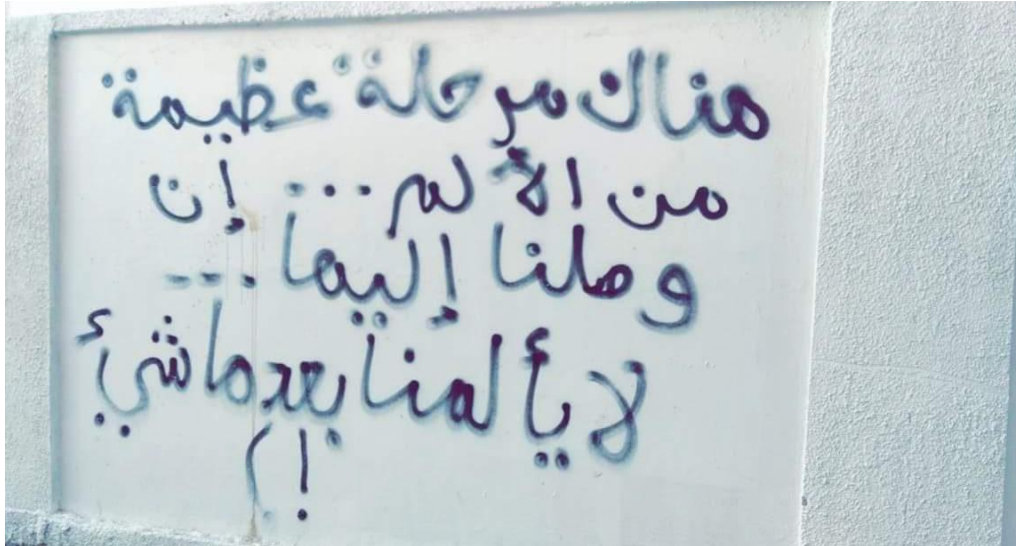 هناك مرحلة عظيمة
من الألم ... إن
وصلنا إليها ...
لا يألمنا بعدها شيء
!